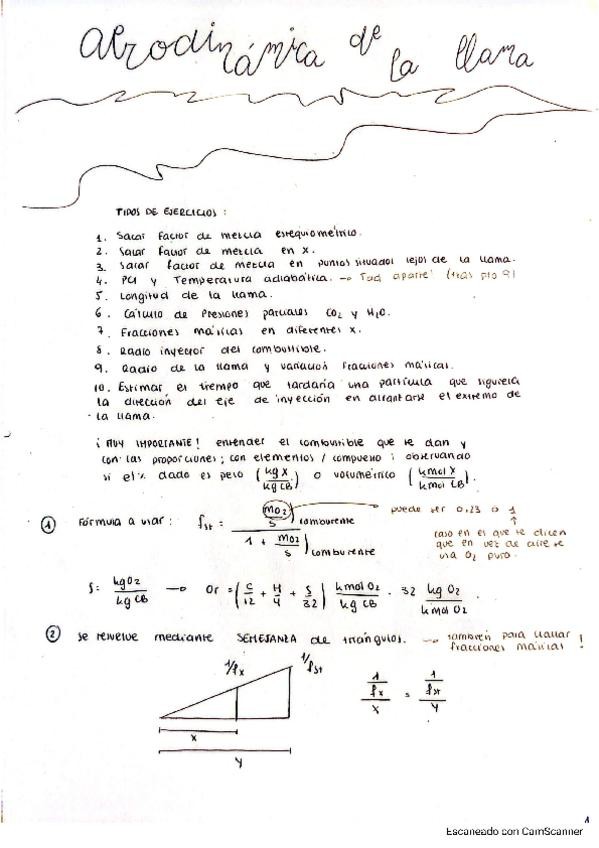 Aerodinámica de la llama
TIPOS DE EJERCICIOS :
1. Sacar Factor de mezcla estequiométrico.
2. Sacar factor de mezcla en x.
3. Sacar factor de mezcla en puntos situados lejos de la llama.
4. PCI y Temperatura adiabática. → Tad aparte! (tras pto 9)
5. Longitud de la llama.
6. Cálculo de Presiones parciales CO2 y H2O.
7. Fracciones másicas en diferentes x.
8. Radio inyector del combustible.
9. Radio de la llama y variación fracciones másicas.
10. Estimar el tiempo que tardaría una partícula que siguiera
la dirección del eje de inyección en alcanzarse el extremo de
la llama.
¡ MUY IMPORTANTE ! entender el combustible que te dan y
con las proporciones ; con elementos / compuesto ; observando
si el % dado es peso (kg X / kg CB) o volumétrico (kmol X / kmol CB).
① Fórmula a usar : fst = (mO2 / S)comburente / (1 + (mO2 / S)comburente) → puede ser 0,23 ó 1
↑
caso en el que te dicen
que en vez de aire se
usa O2 puro.
S: kgO2 / kg CB → Or = (C/12 + H/4 + S/32) kmol O2 / kg CB · 32 kg O2 / kmol O2 .
② Se resuelve mediante SEMEJANZA de triángulos. → también para hallar
fracciones másicas !
1/fx 1/fst
(1/fx) / x = (1/fst) / y
x
y
1
Escaneado con CamScanner